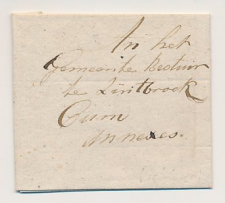 In het
Gemeente Bestuur
te Lintbroek
Cum
Annexes.